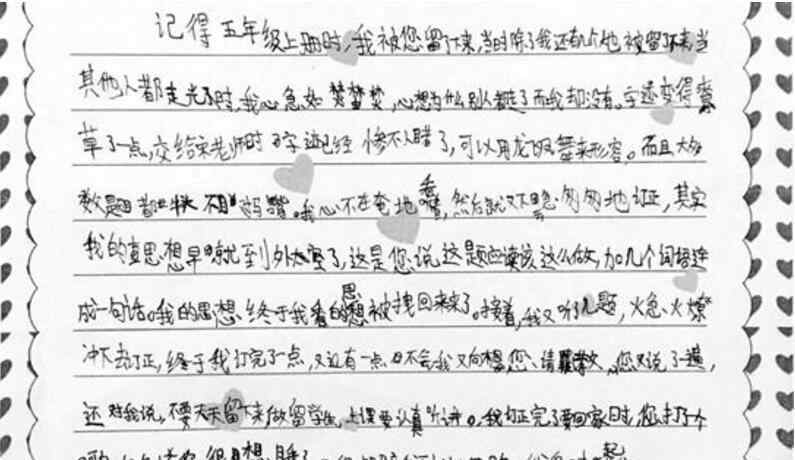 记得五年级上册时,我被您留了下来,当时除了我还有几个也被留下来,当
其他人都走光了时,我心急如焚,心想为什么别人都走了而我却没有。字迹变得潦
草了一点,交给宋老师时字迹已经惨不人睹了,可以用龙飞凤舞来形容。而且大多
数题目都牛头不对马嘴。我心不在焉地看,然后就又急匆匆地订正,其实
我的真思想早就到外太空了,这是您说这题应该这么做,加几个词语连
成一句话。我的思想终于我看的思想被拽回来了。接着,我又听了几题,火急火燎
冲下去订正,终于我订完了一点,又还有一点不会我又向您请教,您又说了一遍,
还对我说,不要天天留下来做留学生,上课要认真听讲。我订正完了要回家时,您打了个